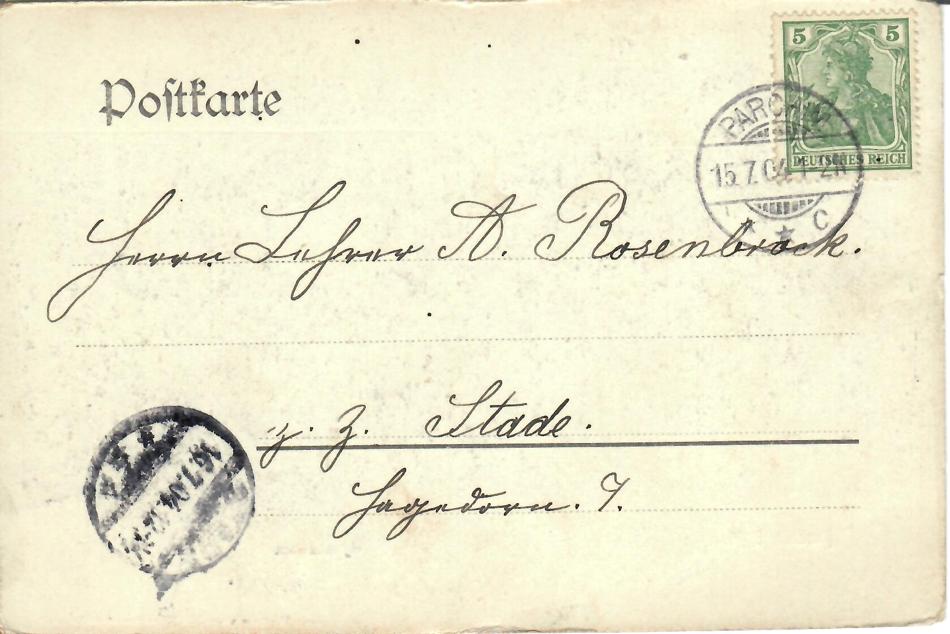 Postkarte
5 5
DEUTSCHES REICH
PARCHIM
15.7.04. 1-2N
* * C
Herrn Lehrer A. Rosenbrock.
z. Z. Stade.
Hagedorn. 7.
16.7.04.